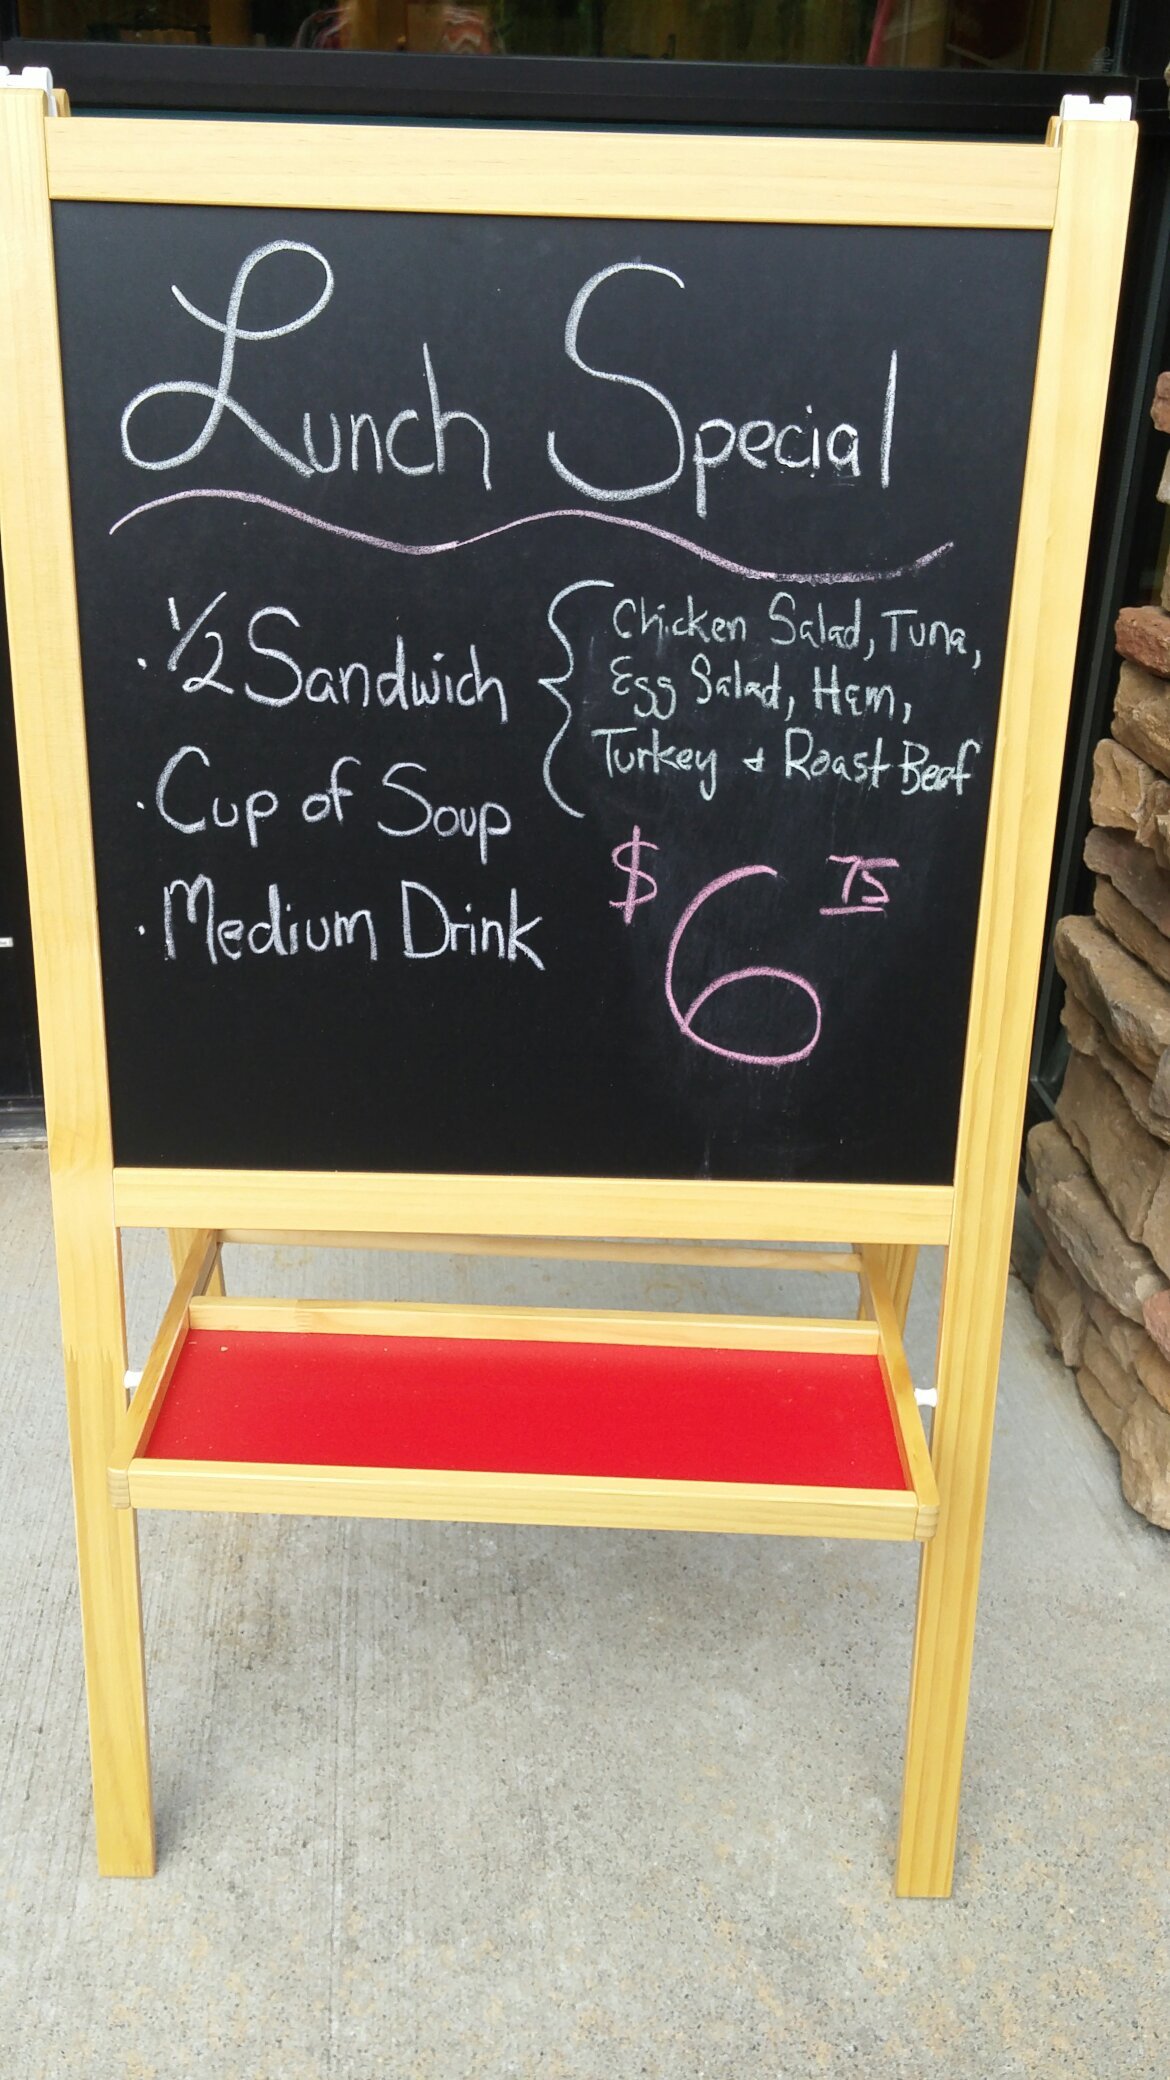 Lunch Special
· 1/2 Sandwich { Chicken Salad, Tuna,
Egg Salad, Ham,
Turkey & Roast Beef
· Cup of Soup
· Medium Drink
$6 75